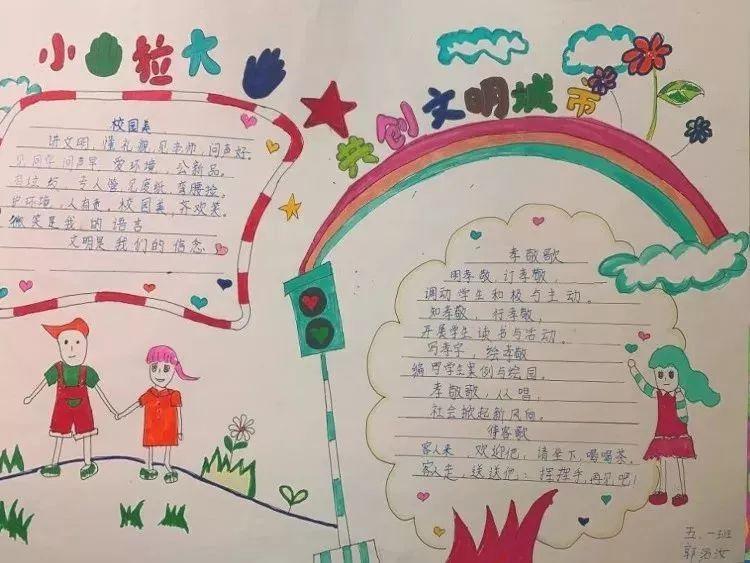 小 拉大
共创文明城市
校园美
讲文明,懂礼貌,见老师,问声好。
见同学,问声早,爱环境,公新品。
专人管,见废纸,弯腰捡。
护环境,人有责,校园美,齐欢笑。
微笑是我们的语言
文明是我们的信念
孝敬歌
用孝敬,订孝敬,
调动学生和极与主动。
知孝敬,行孝敬,
开展学生读书与活动。
写孝字,绘孝敬
编写学生案例与绘园。
孝敬歌,从唱,
社会掀起新风俗。
待客歌
客人来,欢迎他,请坐下,喝喝茶。
客人走,送送他:挥挥手,再见吧!
五、一班
郭 汝